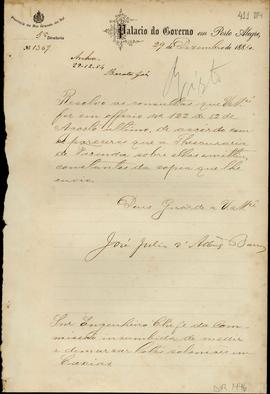 Provincia do Rio Grande do Sul
Palacio do Governo em Porto Alegre,
2ª Directoria
Nº 1367
29 de Dezembro de 1884.
Archive
29-12-84
Resolvo as consultas que Vmce
fez em officio nº 122 de 12 de
Agosto ultimo, de accordo com
os pareceres que a Thesouraria
de Fazenda sobre ellas emittiu,
constantes da copia que lhe
envio.
Deus Guarde a Vmce
José Julio d'Albuq. Barros
Snr Engenheiro Chefe da Com-
missão incumbida de medir
e demarcar lotes coloniaes em
Caxias